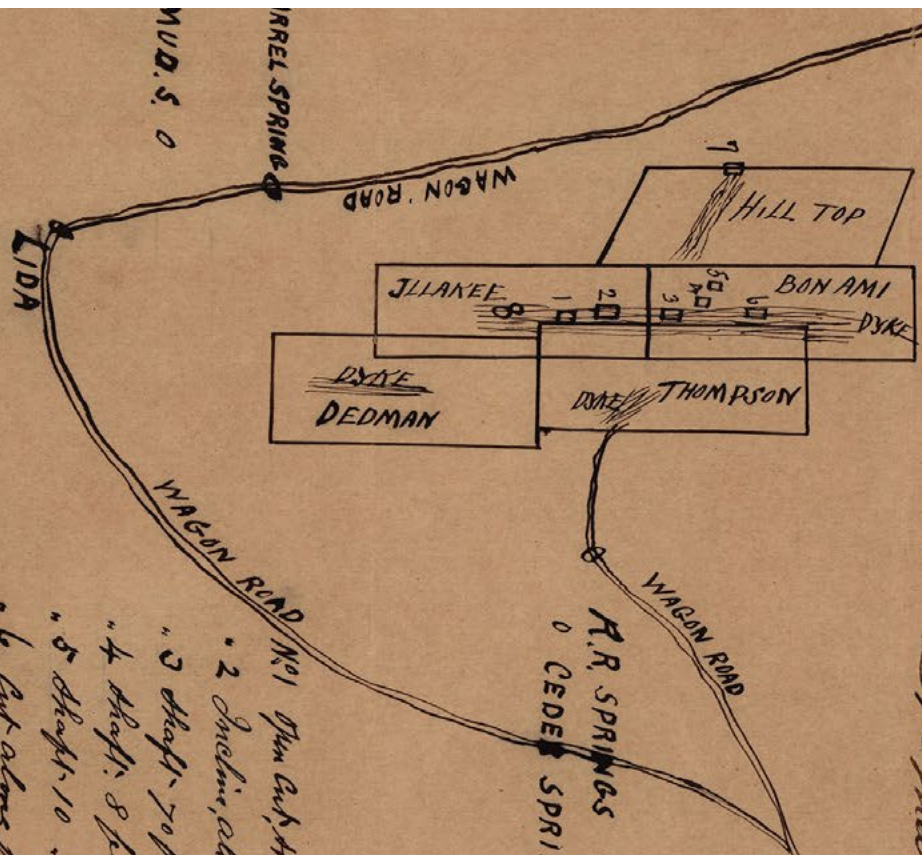 MUD. S.
RREL SPRING
WAGON ROAD
LIDA
7
HILL TOP
JLLAKEE
8
1
2
3
4
5
6
BON AMI
DYKE
DYKE
DEDMAN
DYKE
THOMPSON
WAGON ROAD
WAGON ROAD
R.R. SPRINGS
CEDER SPRI
No1 Open Cut,
" 2 Incline,
" 3 Shaft. 70
" 4 Shaft. 8
" 5 Shaft. 10
" 6 Cut along